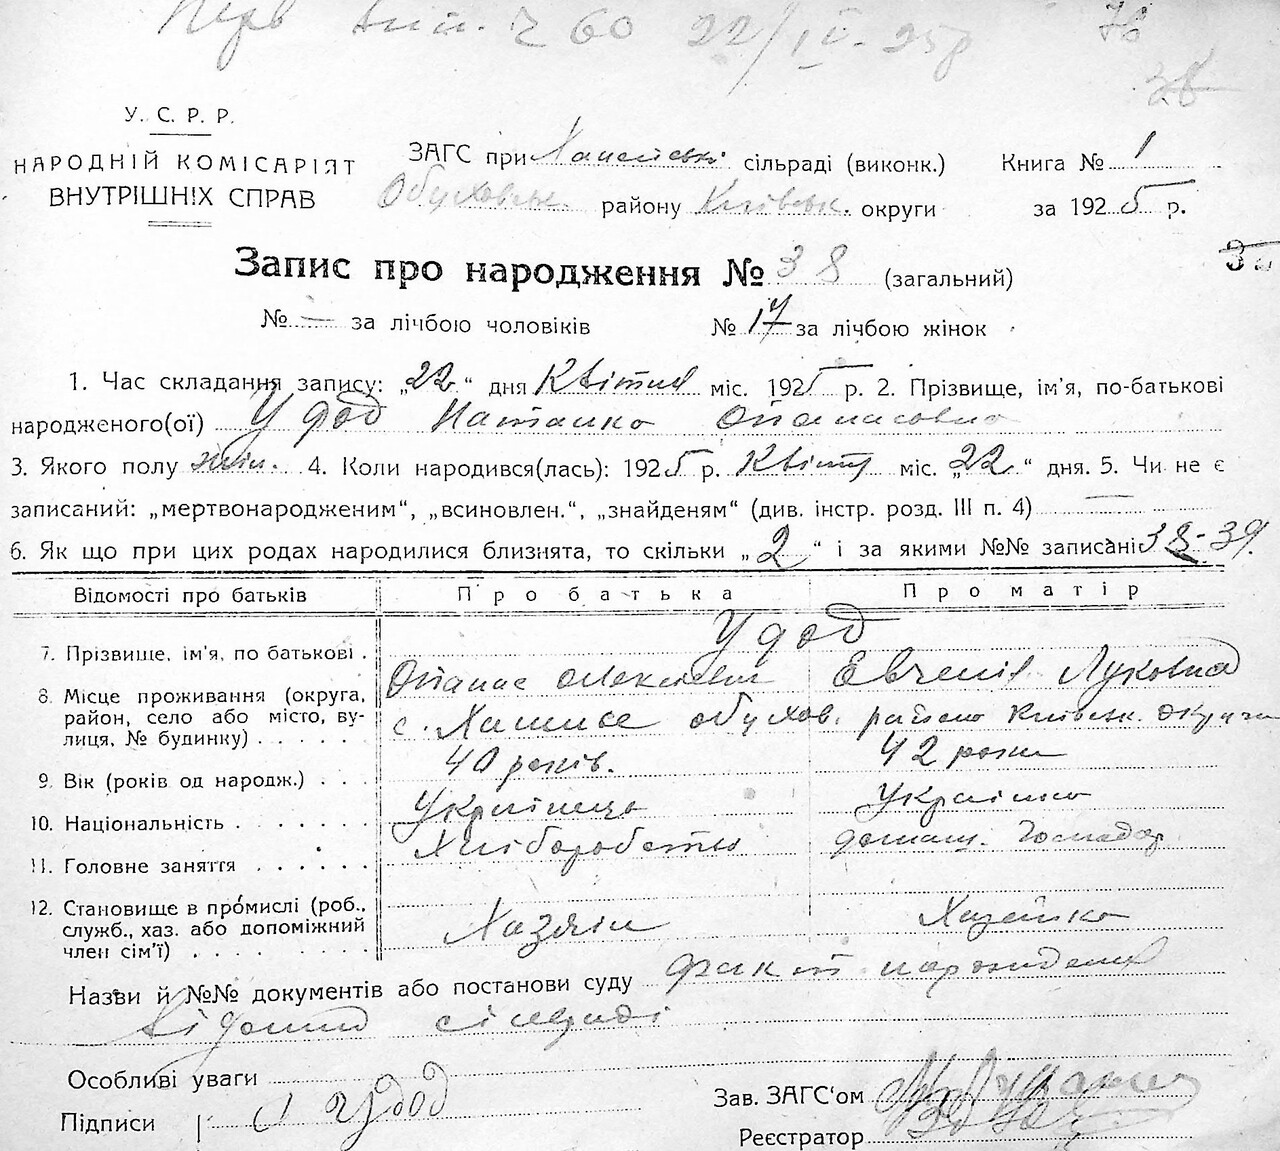 Перв вип. ч 60 22/IV-25р 76
38
У. С. Р. Р.
НАРОДНІЙ КОМІСАРІЯТ
ВНУТРІШНІХ СПРАВ
ЗАГС при сільраді (виконк.) Книга № 1
Обуховськ. району Київськ. округи за 1925 р.
Запис про народження № 38 (загальний)
№ — за лічбою чоловіків № 17 за лічбою жінок
1. Час складання запису: „22“ дня Квітня міс. 1925 р. 2. Прізвище, ім'я, по-батькові
народженого(ої) Удод Наталка Опанасовна
3. Якого полу жін. 4. Коли народився(лась): 1925 р. Квітн міс. „22“ дня. 5. Чи не є
записаний: „мертвонародженим“, „всиновлен.“, „знайденям“ (див. інстр. розд. III п. 4) —
6. Як що при цих родах народилися близнята, то скільки „2“ і за якими №№ записані 38-39.
Відомості про батьків Про батька Про матір
Удод
7. Прізвище, ім'я, по батькові . Опанас Олексієв Евгенія Луковна
8. Місце проживання (округа, район, село або місто, вулиця, № будинку) . . . . . . с. обухов. району Київськ. Округи
9. Вік (років од народж.) . . . 40 років. 42 роки
10. Національність . . . . . . Українець Українка
11. Головне заняття . . . . . . Хліборобство домаш. господар
12. Становище в промислі (роб., служб., хаз. або допоміжний член сім'ї) . . . . . . . Хазяїн Хазяйка
Назви й №№ документів або постанови суду Факт народження
відомий сільраді
Особливі уваги
Підписи Удод Зав. ЗАГС'ом
Реєстратор